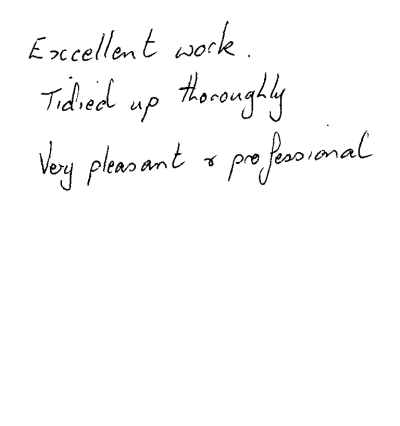 Excellent work.
Tidied up thoroughly
Very pleasant & professional